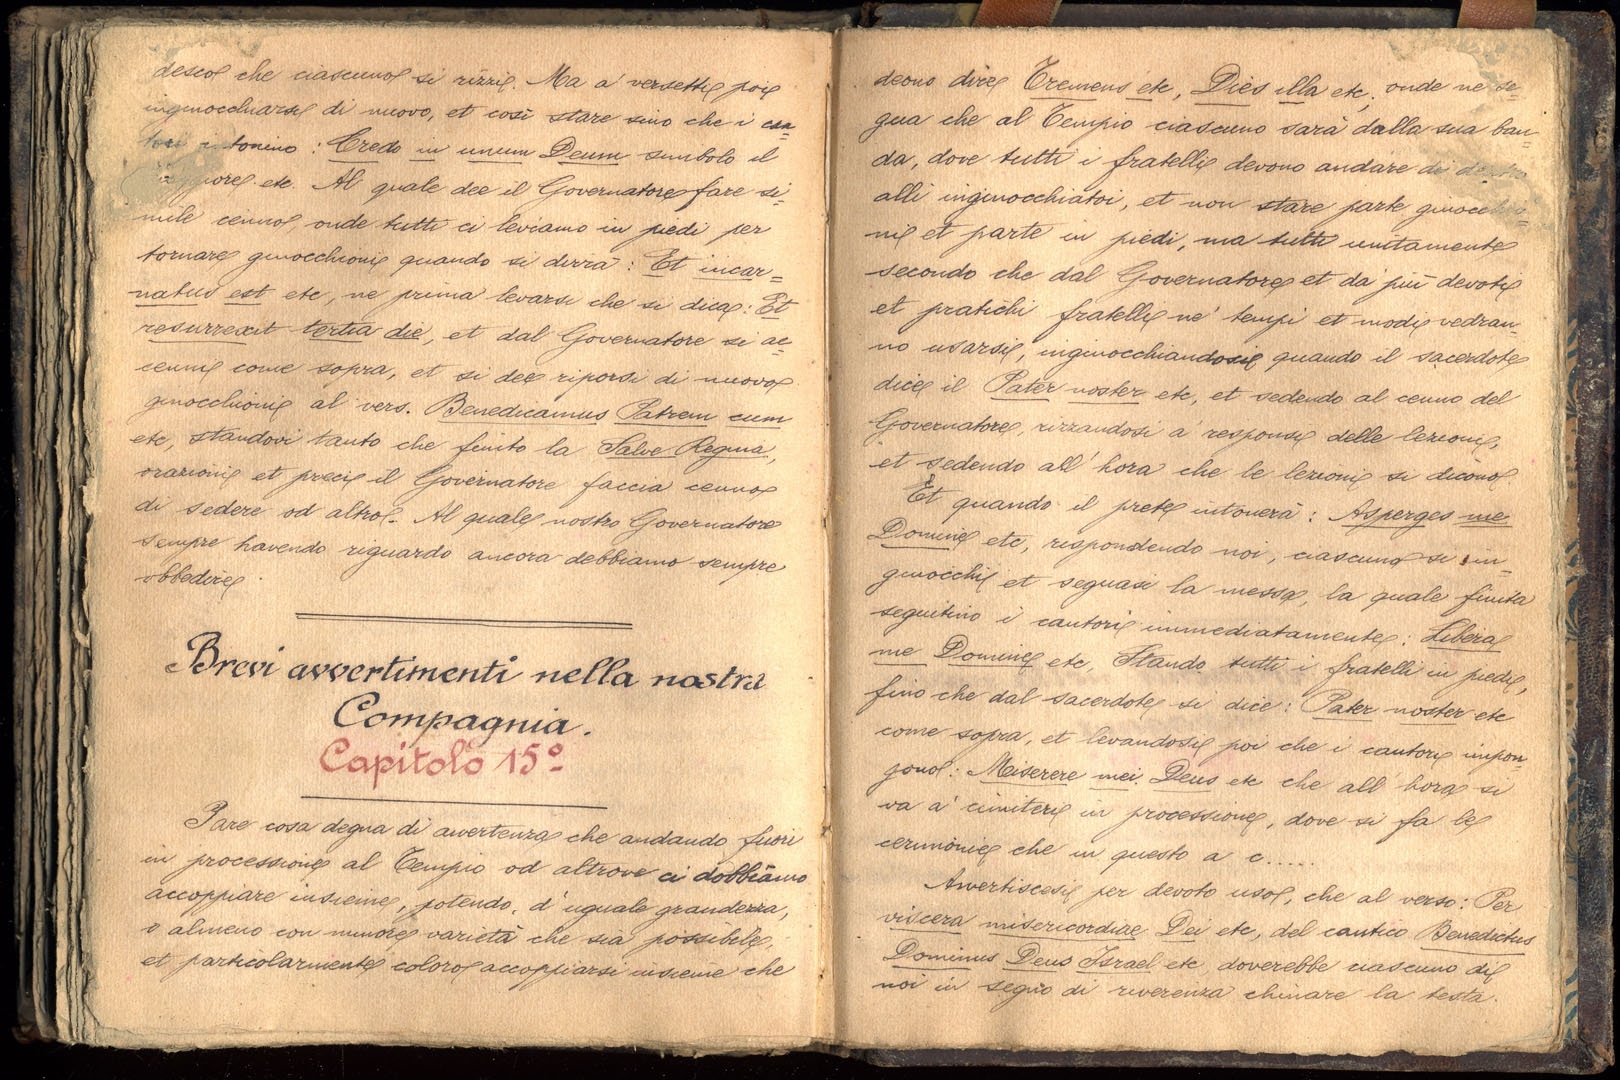 desco che ciascuno si rizzi. Ma a' versetti poi
inginocchiarsi di nuovo, et così stare sino che i can-
tori intonino : Credo in unum Deum simbolo il
maggiore etc. Al quale dee il Governatore fare si-
mile cenno, onde tutti ci leviamo in piedi per
tornare ginocchioni quando si dirrà : Et incar-
natus est etc, ne prima levarsi che si dica : Et
resurrexit tertia die, et dal Governatore si ac-
cenni come sopra, et si dee riporsi di nuovo
ginocchioni al vers. Benedicamus Patrem cum
etc, standovi tanto che finito la Salve Regina,
orazioni et preci il Governatore faccia cenno
di sedere od altro. Al quale nostro Governatore
sempre havendo riguardo ancora debbiamo sempre
obbedire.
Brevi avvertimenti nella nostra
Compagnia.
Capitolo 15º
Pare cosa degna di avvertenza che andando fuori
in processione al Tempio od altrove ci dobbiamo
accoppiare insieme, potendo, d' uguale grandezza,
o almeno con minore varietà che sia possibile,
et particolarmente coloro accoppiarsi insieme che
deono dire Tremens etc, Dies illa etc, onde ne se-
gua che al Tempio ciascuno sarà dalla sua ban-
da, dove tutti i fratelli devono andare di dentro
alli inginocchiatoi, et non stare parte ginocchio-
ni et parte in piedi, ma tutti unitamente
secondo che dal Governatore et da' più devoti
et pratichi fratelli ne' tempi et modi vedran-
no usarsi, inginocchiandosi quando il sacerdote
dice il Pater noster etc, et sedendo al cenno del
Governatore, rizzandosi a' responsi delle lezioni,
et sedendo all' hora che le lezioni si dicono
Et quando il prete intonerà : Asperges me
Domine etc, respondendo noi, ciascuno si in-
ginocchi et seguasi la messa, la quale finita
seguitino i cantori immediatamente : Libera
me Domine etc, Stando tutti i fratelli in piedi,
fino che dal sacerdote si dice : Pater noster etc
come sopra, et levandosi poi che i cantori impon-
gono : Meiserere mei Deus etc che all' hora si
va a' cimiteri in processione, dove si fa le
cerimonie che in questo a c.....
Avvertiscesi per devoto uso, che al verso : Per
viscera misericordiae Dei etc, del cantico Benedictus
Dominus Deus Israel etc doverebbe ciascuno di
noi in segno di riverenza chinare la testa.